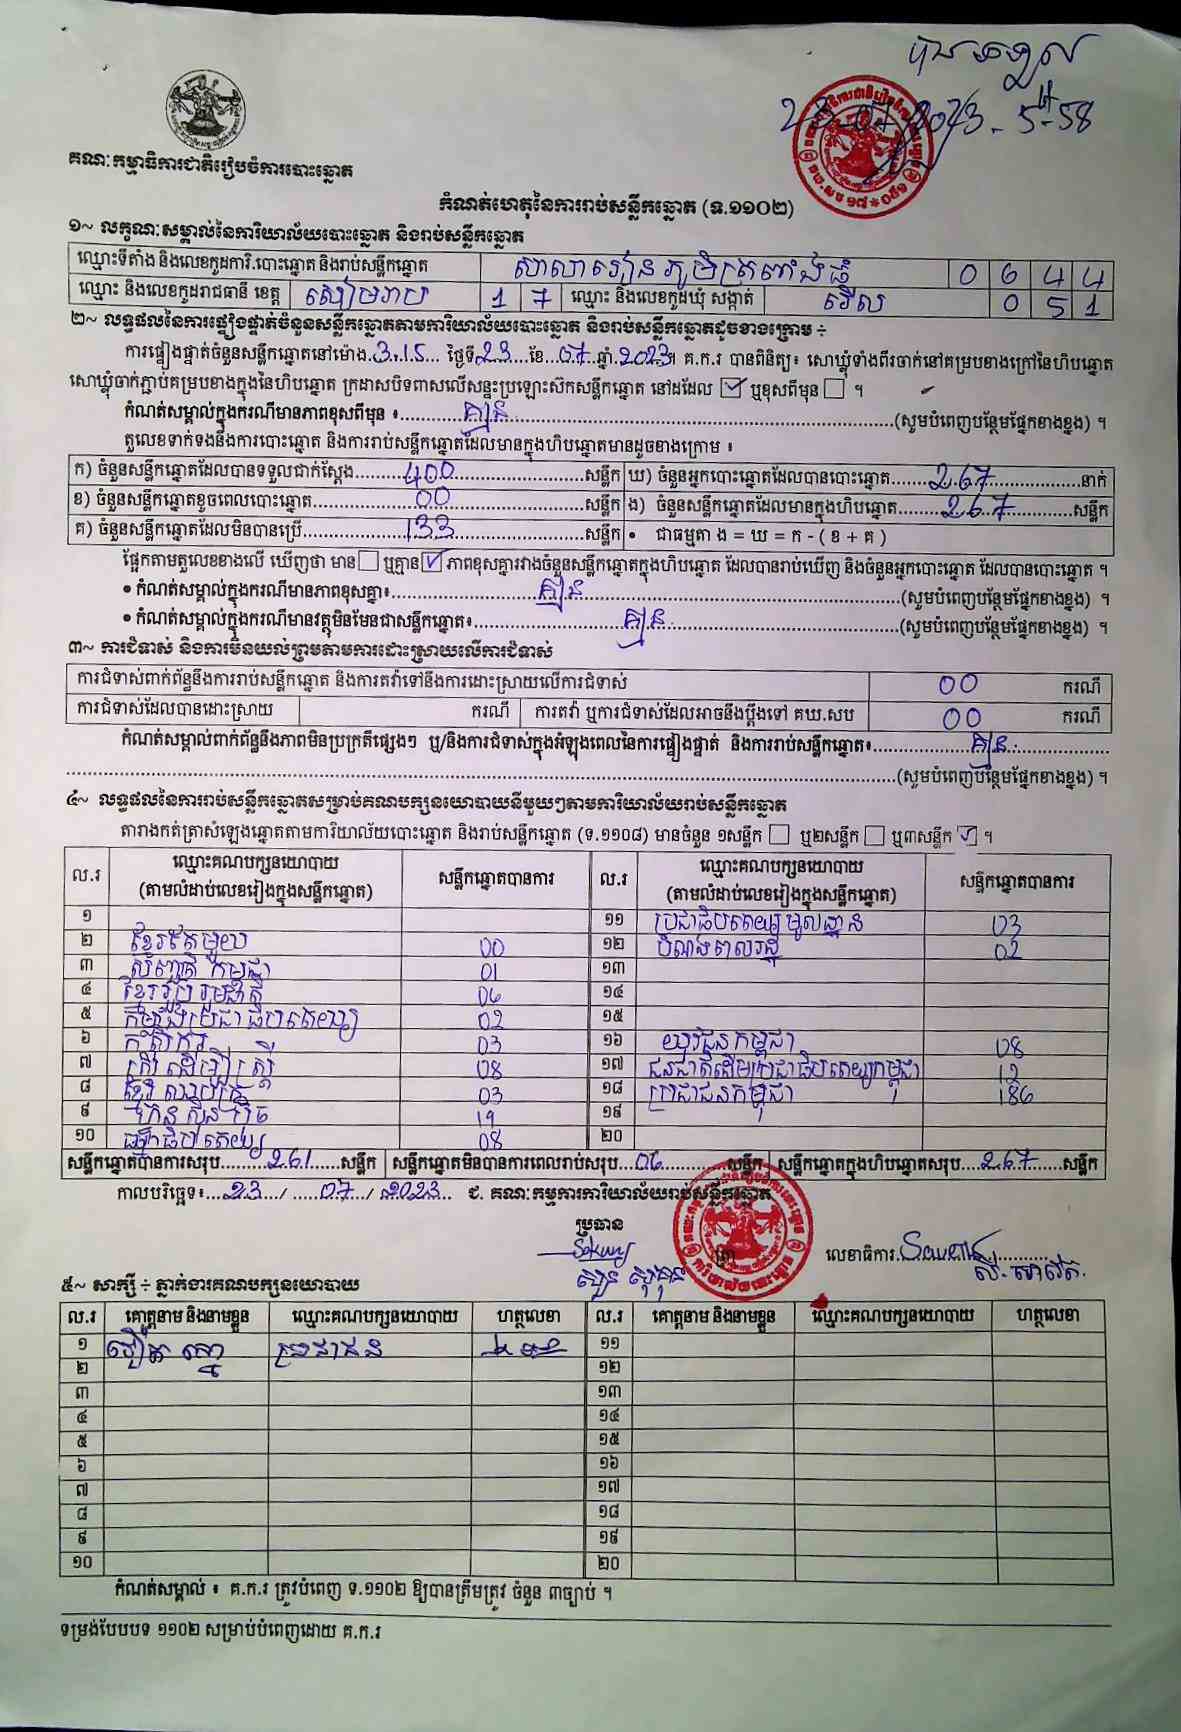 បានទទួល
23-07-2023-5h-58
គណៈកម្មាធិការជាតិរៀបចំការបោះឆ្នោត
កំណត់ហេតុនៃការរាប់សន្លឹកឆ្នោត (ទ.១១០២)
១~ លក្ខណៈសម្គាល់នៃការិយាល័យបោះឆ្នោត និងរាប់សន្លឹកឆ្នោត
ឈ្មោះទីតាំង និងលេខកូដការិ.បោះឆ្នោត និងរាប់សន្លឹកឆ្នោត សាលារៀនភូមិត្រពាំងធំ 0 6 4 4
ឈ្មោះ និងលេខកូដរាជធានី ខេត្ត សៀមរាប 1 7 ឈ្មោះ និងលេខកូដឃុំ សង្កាត់ វើល 0 5 1
២~ លទ្ធផលនៃការផ្ទៀងផ្ទាត់ចំនួនសន្លឹកឆ្នោតតាមការិយាល័យបោះឆ្នោត និងរាប់សន្លឹកឆ្នោតដូចខាងក្រោម ÷
ការផ្ទៀងផ្ទាត់ចំនួនសន្លឹកឆ្នោតនៅម៉ោង.3.15... ថ្ងៃទី.23...ខែ..07..ឆ្នាំ.2023។ គ.ក.រ បានពិនិត្យ៖ សោឃ្លុំទាំងពីរចាក់នៅគម្របខាងក្រៅនៃហិបឆ្នោត
សោឃ្លុំចាក់ភ្ជាប់គម្របខាងក្នុងនៃហិបឆ្នោត ក្រដាសបិទពាសលើសន្ទះប្រឡោះស៊កសន្លឹកឆ្នោត នៅដដែល ☑ ឬខុសពីមុន ☐ ។
កំណត់សម្គាល់ក្នុងករណីមានភាពខុសពីមុន ៖ គ្មាន (សូមបំពេញបន្ថែមផ្នែកខាងខ្នង) ។
តួលេខទាក់ទងនឹងការបោះឆ្នោត និងការរាប់សន្លឹកឆ្នោតដែលមានក្នុងហិបឆ្នោតមានដូចខាងក្រោម ៖
ក) ចំនួនសន្លឹកឆ្នោតដែលបានទទួលជាក់ស្តែង 400 សន្លឹក ឃ) ចំនួនអ្នកបោះឆ្នោតដែលបានបោះឆ្នោត 267 នាក់
ខ) ចំនួនសន្លឹកឆ្នោតខូចពេលបោះឆ្នោត 00 សន្លឹក ង) ចំនួនសន្លឹកឆ្នោតដែលមានក្នុងហិបឆ្នោត 267 សន្លឹក
គ) ចំនួនសន្លឹកឆ្នោតដែលមិនបានប្រើ 133 សន្លឹក • ជាធម្មតា ង = ឃ = ក - ( ខ + គ )
ផ្អែកតាមតួលេខខាងលើ ឃើញថា មាន ☐ ឬគ្មាន ☑ ភាពខុសគ្នារវាងចំនួនសន្លឹកឆ្នោតក្នុងហិបឆ្នោត ដែលបានរាប់ឃើញ និងចំនួនអ្នកបោះឆ្នោត ដែលបានបោះឆ្នោត ។
• កំណត់សម្គាល់ក្នុងករណីមានភាពខុសគ្នា៖ គ្មាន (សូមបំពេញបន្ថែមផ្នែកខាងខ្នង) ។
• កំណត់សម្គាល់ក្នុងករណីមានវត្ថុមិនមែនជាសន្លឹកឆ្នោត៖ គ្មាន (សូមបំពេញបន្ថែមផ្នែកខាងខ្នង) ។
៣~ ការជំទាស់ និងការមិនយល់ព្រមតាមការដោះស្រាយលើការជំទាស់
ការជំទាស់ពាក់ព័ន្ធនឹងការរាប់សន្លឹកឆ្នោត និងការតវ៉ាទៅនឹងការដោះស្រាយលើការជំទាស់ 00 ករណី
ការជំទាស់ដែលបានដោះស្រាយ ករណី ការតវ៉ា ឬការជំទាស់ដែលអាចនឹងប្តឹងទៅ គឃ.សប 00 ករណី
កំណត់សម្គាល់ពាក់ព័ន្ធនឹងភាពមិនប្រក្រតីផ្សេងៗ ឬ/និងការជំទាស់ក្នុងអំឡុងពេលនៃការផ្ទៀងផ្ទាត់ និងការរាប់សន្លឹកឆ្នោត៖ គ្មាន
(សូមបំពេញបន្ថែមផ្នែកខាងខ្នង) ។
៤~ លទ្ធផលនៃការរាប់សន្លឹកឆ្នោតសម្រាប់គណបក្សនយោបាយនីមួយៗតាមការិយាល័យរាប់សន្លឹកឆ្នោត
តារាងកត់ត្រាសំឡេងឆ្នោតតាមការិយាល័យបោះឆ្នោត និងរាប់សន្លឹកឆ្នោត (ទ.១១០៨) មានចំនួន ១សន្លឹក ☐ ឬ២សន្លឹក ☐ ឬ៣សន្លឹក ☑ ។
ល.រ ឈ្មោះគណបក្សនយោបាយ (តាមលំដាប់លេខរៀងក្នុងសន្លឹកឆ្នោត) សន្លឹកឆ្នោតបានការ ល.រ ឈ្មោះគណបក្សនយោបាយ (តាមលំដាប់លេខរៀងក្នុងសន្លឹកឆ្នោត) សន្លឹកឆ្នោតបានការ
១ ១១ ប្រជាធិបតេយ្យមូលដ្ឋាន 03
២ ខ្មែរតែមួយ 00 ១២ បំណងពលរដ្ឋ 02
៣ សំបុកឃ្មុំ កម្ពុជា 01 ១៣
៤ ខ្មែររួបរួមជាតិ 06 ១៤
៥ កម្លាំងប្រជាធិបតេយ្យ 02 ១៥
៦ កសិករ 03 ១៦ យុវជនកម្ពុជា 08
៧ ស្ត្រីដើម្បីស្ត្រី 08 ១៧ ជនជាតិដើមប្រជាធិបតេយ្យកម្ពុជា 12
៨ ខ្មែរ 03 ១៨ ប្រជាជនកម្ពុជា 186
៩ ហ្វ៊ុនស៊ិនប៉ិច 19 ១៩
១០ ធម្មាធិបតេយ្យ 08 ២០
សន្លឹកឆ្នោតបានការសរុប 261 សន្លឹក សន្លឹកឆ្នោតមិនបានការពេលរាប់សរុប 06 សន្លឹក សន្លឹកឆ្នោតក្នុងហិបឆ្នោតសរុប 267 សន្លឹក
កាលបរិច្ឆេទ៖ 23 / 07 / 2023 ជ. គណៈកម្មការការិយាល័យរាប់សន្លឹកឆ្នោត
ប្រធាន
លេខាធិការ
៥~ សាក្សី ÷ ភ្នាក់ងារគណបក្សនយោបាយ
ល.រ គោត្តនាម និងនាមខ្លួន ឈ្មោះគណបក្សនយោបាយ ហត្ថលេខា ល.រ គោត្តនាម និងនាមខ្លួន ឈ្មោះគណបក្សនយោបាយ ហត្ថលេខា
១ ប្រជាជន ១១
២ ១២
៣ ១៣
៤ ១៤
៥ ១៥
៦ ១៦
៧ ១៧
៨ ១៨
៩ ១៩
១០ ២០
កំណត់សម្គាល់ ៖ គ.ក.រ ត្រូវបំពេញ ទ.១១០២ ឱ្យបានត្រឹមត្រូវ ចំនួន ៣ច្បាប់ ។
ទម្រង់បែបបទ ១១០២ សម្រាប់បំពេញដោយ គ.ក.រ